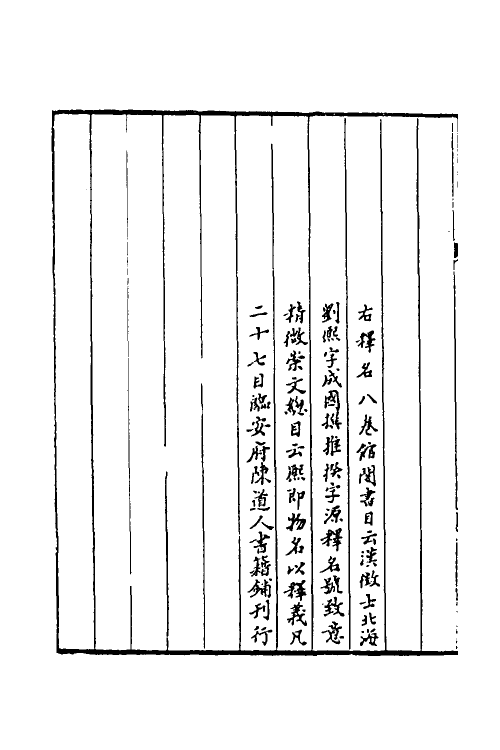 右釋名八卷館閣書目云漢徵士北海
劉熙字成國撰推揆字源釋名號致意
精微崇文總目云熙即物名以釋義凡
二十七目臨安府陳道人書籍鋪刊行